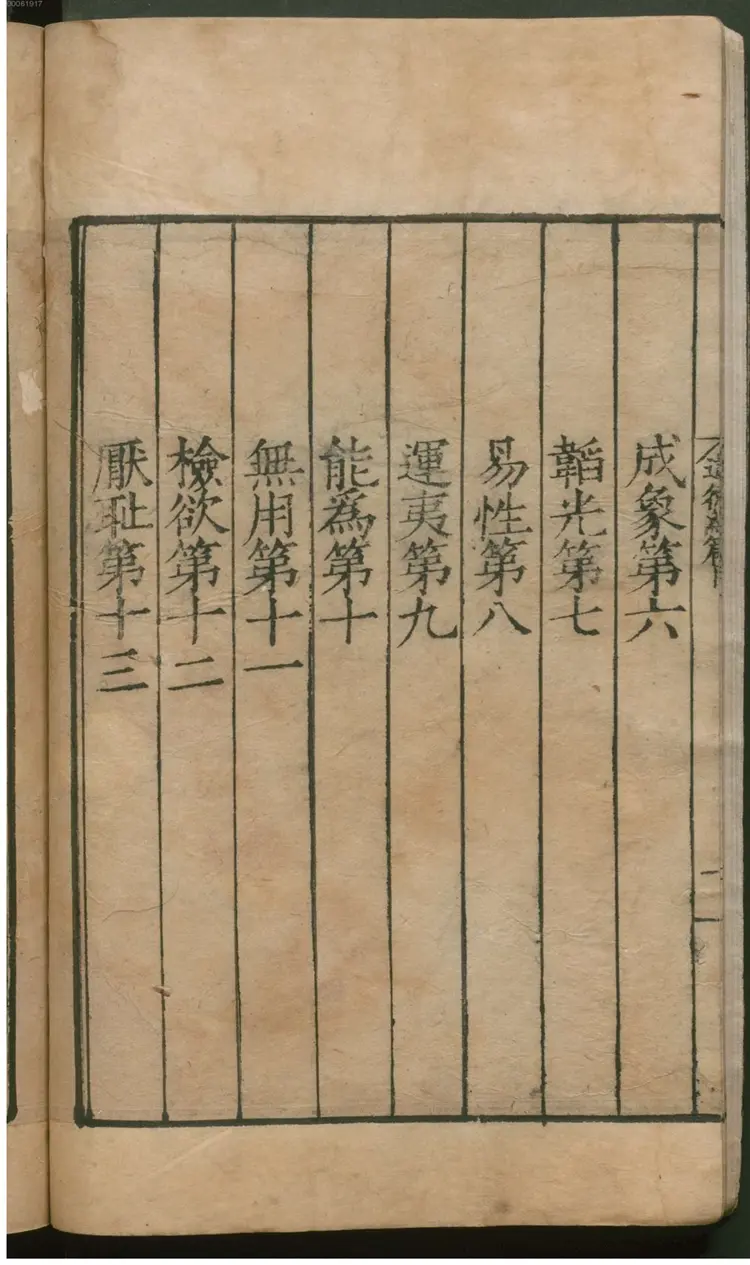 成象第六
韜光第七
易性第八
運夷第九
能爲第十
無用第十一
檢欲第十二
厭耻第十三
00061917